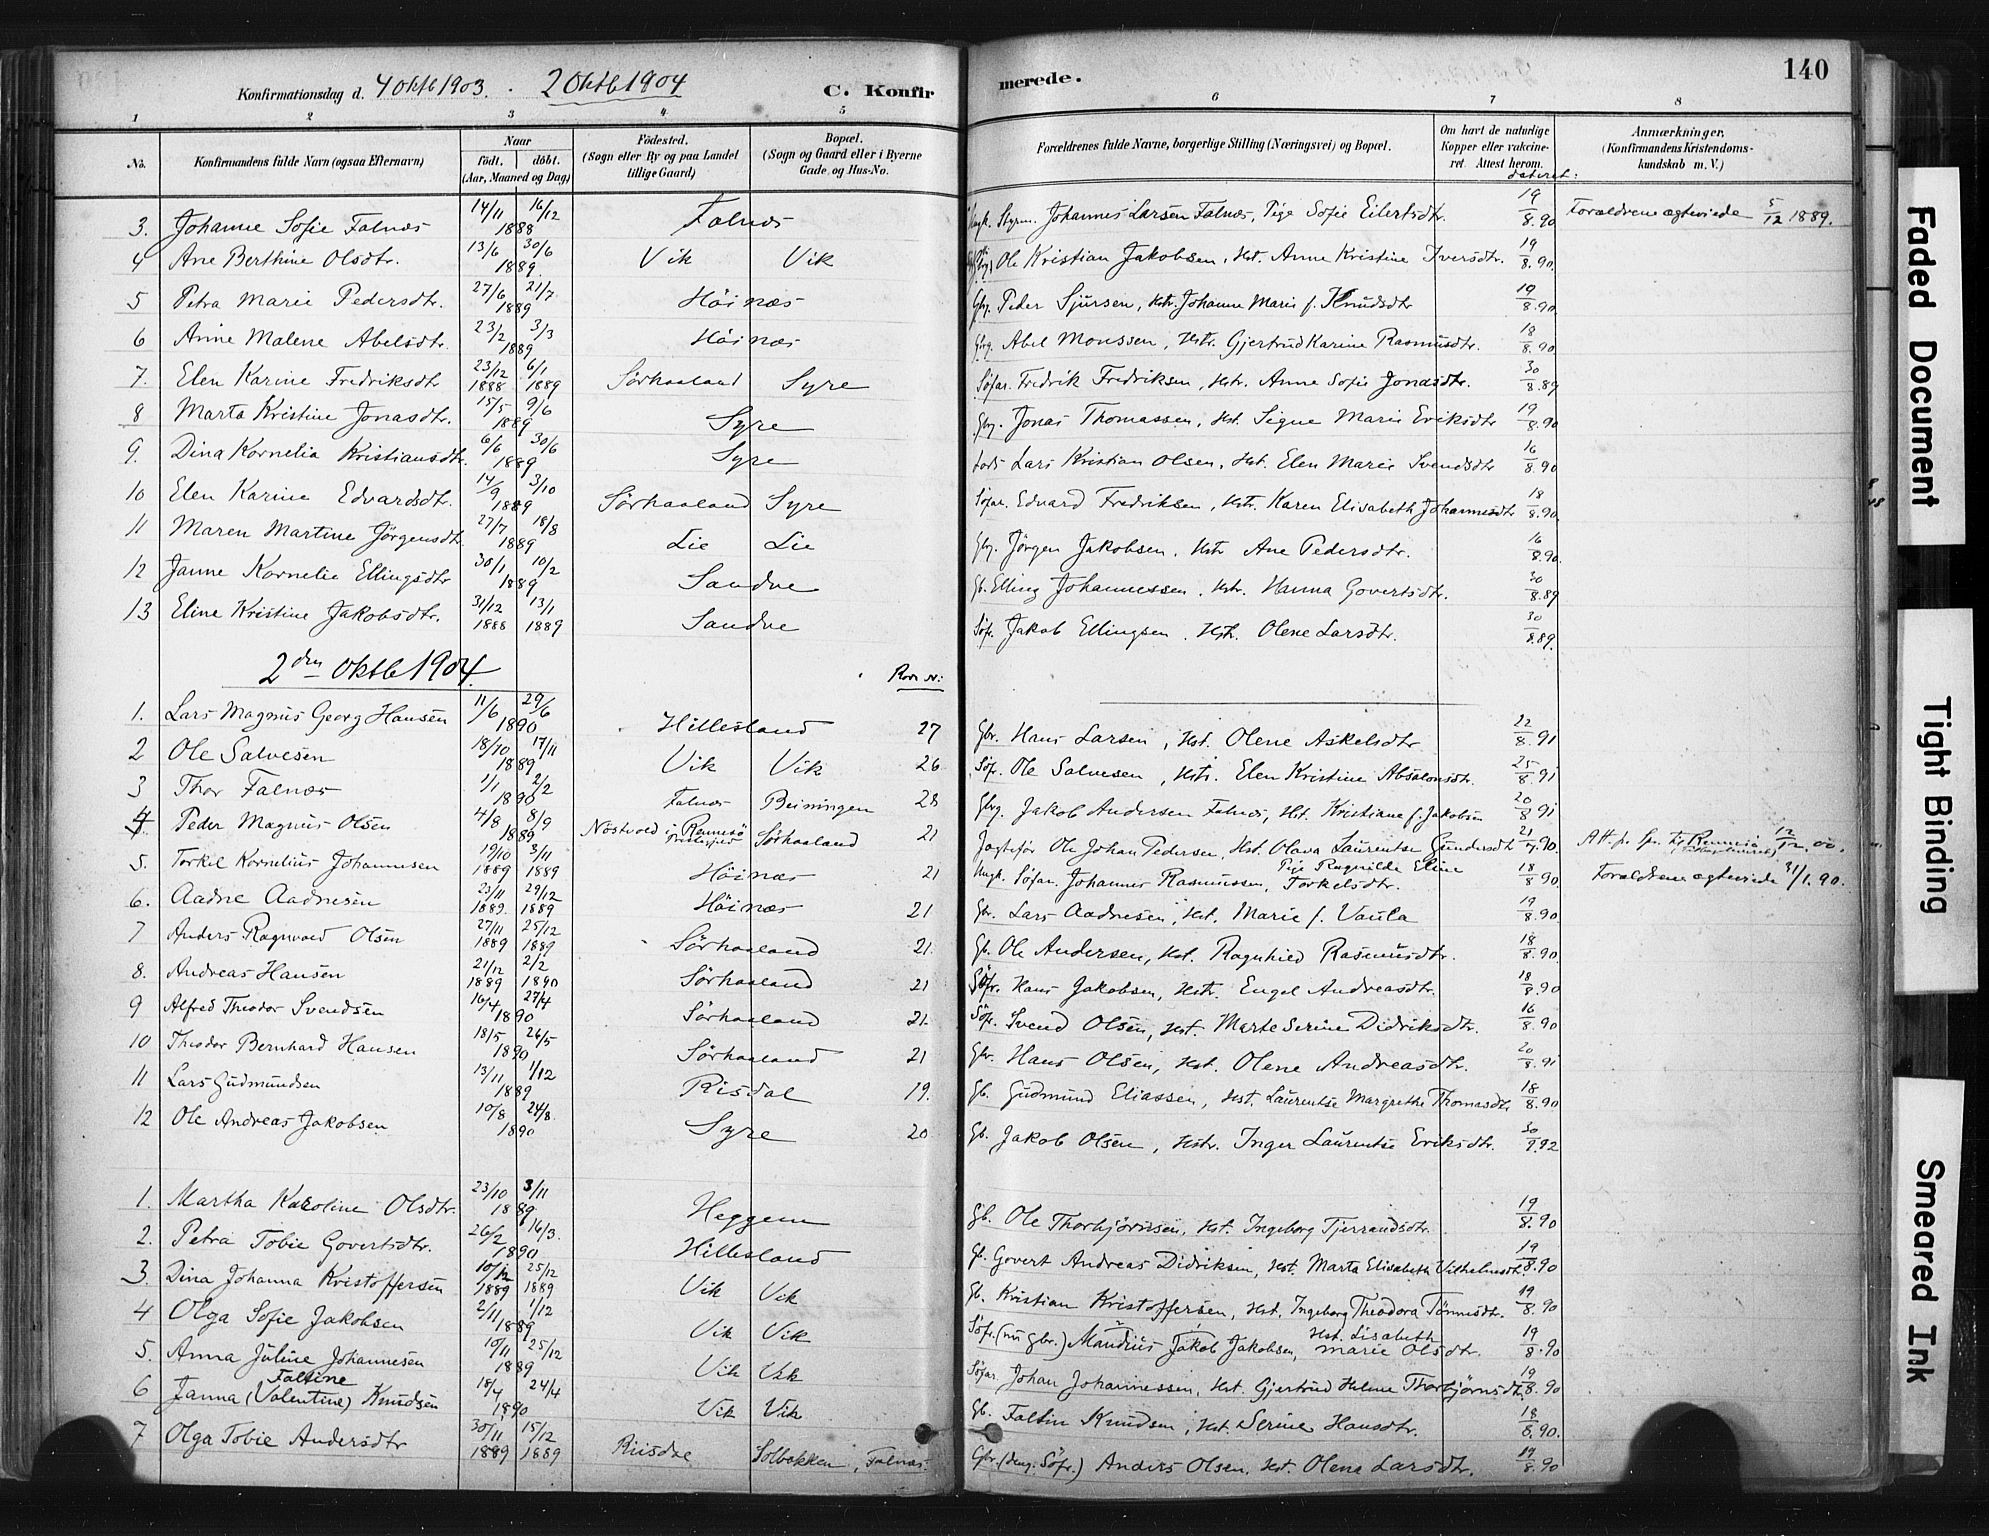 140
Konfirmationsdag d. 4 Oktb 1903. - 2 Oktb 1904 C. Konfirmerede.
1 2 3 4. 5 6 7 8
No. Konfirmandens fulde Navn (ogsaa Efternavn) Naar født. døbt. (Aar, Maaned og Dag) Fødested. (Sogn eller By og paa Landet tillige Gaard) Bopæl. (Sogn og Gaard eller i Byerne Gade og Hus-No. Forældrenes fulde Navne, borgerlige Stilling (Næringsvei) og Bopæl. Om havt de naturlige Kopper eller vakcineret. Attest herom. dateret: Anmærkninger. (Konfirmandens Kristendomskundskab m. V.)
3. Johanne Sofie Falnæs 14/11 16/12 1888 Falnæs Ungk. Styrm. Johannes Larsen Falnæs, Pige Sofie Eilertsdtr. 19/8.90 Forældrene ægteviede 5/12 1889.
4 Ane Berthine Olsdtr. 13/6 30/6 1889. Vik Vik Ole Kristian Jakobsen, Hst. Anne Kristine Iversdtr. 19/8.90.
5 Petra Marie Pedersdtr. 27/6 21/7 1889 Høinæs Gbrg. Peder Sjursen, Hstr. Johanne Marie f. Knudsdtr 19/8.90.
6 Anne Malene Abelsdtr. 23/2 3/3 1889 Høinæs Gbrg. Abel Monssen, Hstr. Gjertrud Karine Rasmusdtr. 18/8.90.
7. Elen Karine Fredriksdtr 23/12 1888 6/1 1889 Sørhaaland Syre Søfar. Fredrik Fredriksen, Hstr. Anne Sofie Jonasdtr. 30/8.89
8 Marta Kristine Jonasdtr. 15/5 9/6 1889 Syre Gbrg. Jonas Thomassen, Hst. Signe Marie Eriksdtr 19/8.90
9. Dina Kornelia Kristiansdtr. 6/6 30/6 1889 Syre Lods Lars Kristian Olsen, Hst. Elen Marie Svendsdtr 16/8.90
10 Elen Karine Edvardsdtr. 14/9 3/10 1889 Sørhaaland Syre Søfar. Edvard Fredriksen, Hstr. Karen Elisabeth Johannesdtr 18/8.90.
11 Maren Martine Jørgensdtr. 27/7 18/8 1889 Lie Lie Gbrg. Jørgen Jakobsen, Hstr Ane Pedersdtr. 16/8.90.
12 Janne Kornelie Ellingsdtr 30/1 10/2 1889 Sandve Gb. Elling Johannessen, Hstr. Hanna Govertsdtr. 30/8.89
13 Eline Kristine Jakobsdtr. 31/12 1888 13/1 1889 Sandve Søfr. Jakob Ellingsen, Hstr. Olene Larsdtr. 30/8.89.
2den Oktb 1904.
1. Lars Magnus Georg Hansen 11/6 29/6 1890 Hillesland 27 Gbr. Hans Larsen, Hst. Olene Askelsdtr 22/8.91
2 Ole Salvesen 18/10 17/11 1889 Vik Vik 26 Søfr. Ole Salvesen, Hstr. Elen Kristine Absalonsdtr. 25/8.91
3 Thor Falnæs 1/1 2/2 1890 Falnæs Beiningen 28 Gbrg. Jakob Andersen Falnæs, Hst. Kristiane f. Jakobsen 20/8 91
4. Peder Magnus Olsen 4/8 8/9 1889 Nøstvold i Rennesø Præstegjeld Sørhaaland 21 Jagtefør Ole Johan Pedersen, Hst. Olava Laurentse Gundersdtr 21/7.90. Att. fr. Spr. til Rennesø 12/12.00.
5. Torkel Kornelius Johannesen 19/10 1889 3/11 1889 Høinæs 21 Ungk. Søfar. Johannes Rasmussen, Pige Ragnilde Eline Torkelsdtr. 18/8.90. Forældrene ægteviede 31/1.90.
6. Aadne Aadnesen 23/11 1889. 29/12 1889 Høinæs 21 Gbr. Lars Aadnesen, Hst. Marie f. Vaula 19/8.90
7 Anders Ragnvald Olsen 27/11 1889 25/12 1889 Sørhaaland 21. Gb. Ole Andersen, Hst. Ragnhied Rasmusdtr. 18/8.90.
8. Andreas Hansen 21/12 1889 2/2 1890 Sørhaaland 21 Søfr. Hans Jakobsen, Hstr. Engel Andreasdtr. 18/8.90
9 Alfred Theodor Svendsen 16/4 27/4 1890 Sørhaaland 21. Søfr. Svend Olsen, Hst. Marte Serine Didriksdtr. 16/8.90
10 Theodor Bernhard Hansen 18/5 26/5 1890 Sørhaaland 21 Gbr. Hans Olsen, Hst. Olene Andreasdtr. 20/8.91
11 Lars Gudmundsen 13/11 1/12 1889 Risdal 19. Gb. Gudmund Eliassen, Hst. Laurentse Margrethe Thomasdtr 18/8.90
12 Ole Andreas Jakobsen 10/8 24/8. 1890 Syre 20 Gb. Jakob Olsen, Hstr. Inger Laurentse Eriksdtr. 30/9.92
1. Martha Karoline Olsdtr. 23/10 3/11 1889 Heggem Gb. Ole Thorbjørnsen, Hst. Ingeborg Tjerrandsdtr. 19/8.90
2. Petra Tobie Govertsdtr. 26/2 16/3. 1890 Hillesland Gb. Govert Andreas Didriksen, Hst. Marta Elisabeth Vilhelmsdtr. 19/8.90
3. Dina Johanna Kristoffersen 10/12 1889 25/12 1889 Vik Vik Gb. Kristian Kristoffersen, Hst. Ingeborg Theodora Tønnesdtr. 19/8.90
4 Olga Sofie Jakobsen 2/11 1/12 1889 Vik Vik Søfr. (nu gbr.) Mandius Jakob Jakobsen, Hst. Lisabeth Marie Olsdtr. 19/8.90
5. Anna Juline Johannesen 10/11 25/12 1889 Vik Vik Søfar. Johan Johannessen, Hst. Gjertrud Helene Thorbjørnsdtr 19/8.90
6 Janna (Valentine) Faltine Knudsen 18/4 24/4 1890 Vik Vik Gb. Faltin Knudsen, Hst. Serine Hansdtr. 18/8.90.
7 Olga Tobie Andersdtr 30/11 1889 15/12 1889 Riisdal Solbakken, Falnæs. Gbr. (deng. Søfr.) Anders Olsen, Hst. Olena Larsdtr. 19/8.90
Faded Document
Tight Binding
Smeared Ink